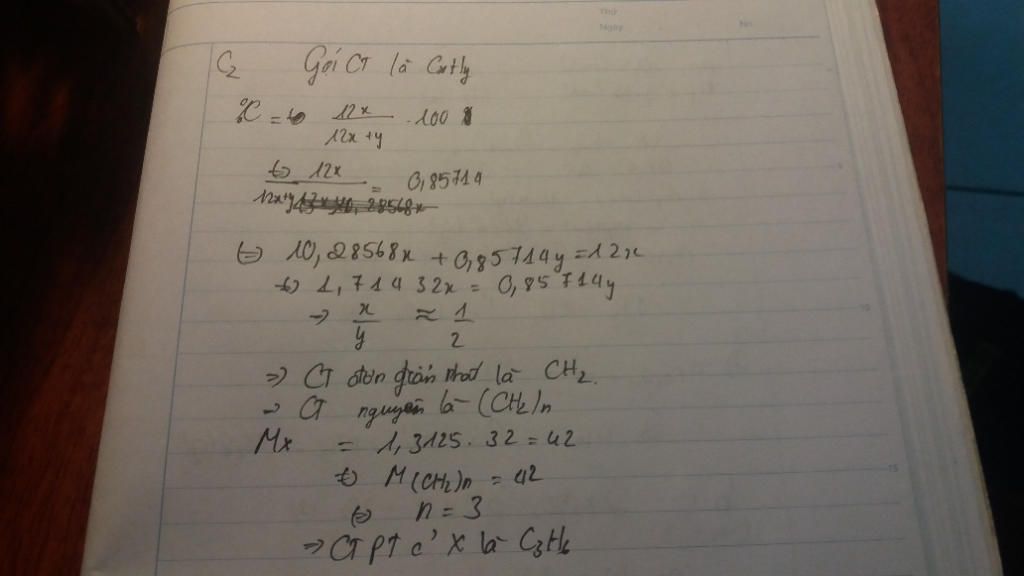 Thứ
Ngày No.
C2 Gọi CT là CxHy
%C = 12x / 12x+y . 100
<=> 12x / 12x+y = 0,85714
12x+y 10,28568x
<=> 10,28568x + 0,85714y = 12x
<=> 1,71432x = 0,85714y
-> x/y ≈ 1/2
=> CT đơn giản nhất là CH2.
-> CT nguyên là (CH2)n
Mx = 1,3125 . 32 = 42
<=> M(CH2)n = 42
<=> n = 3
=> CTPT c' X là C3H6
5
10
15